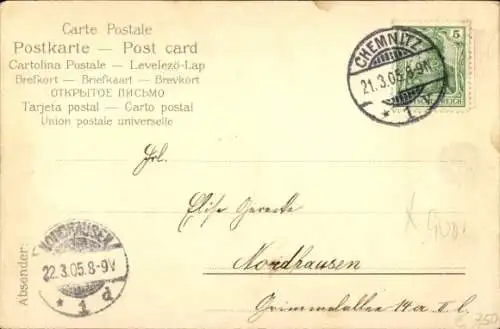 Carte Postale
Postkarte — Post card
Cartolina Postale — Levelező-Lap
Brefkort — Briefkaart — Brevkort
ОТКРЫТОЕ ПИСЬМО
Tarjeta postal — Carto postal
Union postale universelle
5
DEUTSCHES REICH
CHEMNITZ
21.3.05.8-9N.
* 1
Frl.
Elise Gerecke
Nordhausen
Grimmelallee 14 a II l.
NORDHAUSEN
22.3.05.8-9V
* 1 d
Absender:
750